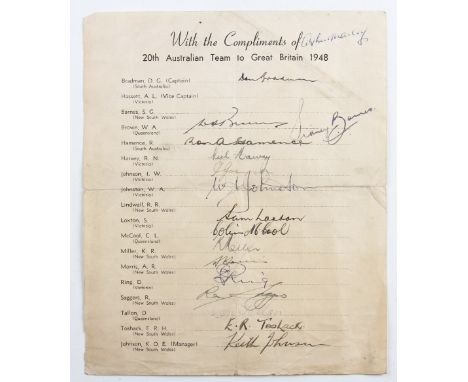 With the Compliments of
20th Australian Team to Great Britain 1948
Bradman, D. G. (Captain) Don Bradman
(South Australia)
Hassett, A. L. (Vice Captain)
(Victoria)
Barnes, S. G. Sidney Barnes
(New South Wales)
Brown, W. A.
(Queensland)
Hamence, R. Ron A Hamence
(South Australia)
Harvey, R. N. Neil Harvey
(Victoria)
Johnson, I. W.
(Victoria)
Johnston, W. A. W Johnston
(Victoria)
Lindwall, R. R.
(New South Wales)
Loxton, S. Sam Loxton
(Victoria)
McCool, C. L. Colin McCool
(Queensland)
Miller, K. R.
(New South Wales)
Morris, A. R.
(New South Wales)
Ring, D. D Ring
(Victoria)
Saggers, R.
(New South Wales)
Tallon, D.
(Queensland)
Toshack, E. R. H. E. R. Toshack
(New South Wales)
Johnson, K. O. E. (Manager) Keith Johnson
(New South Wales)